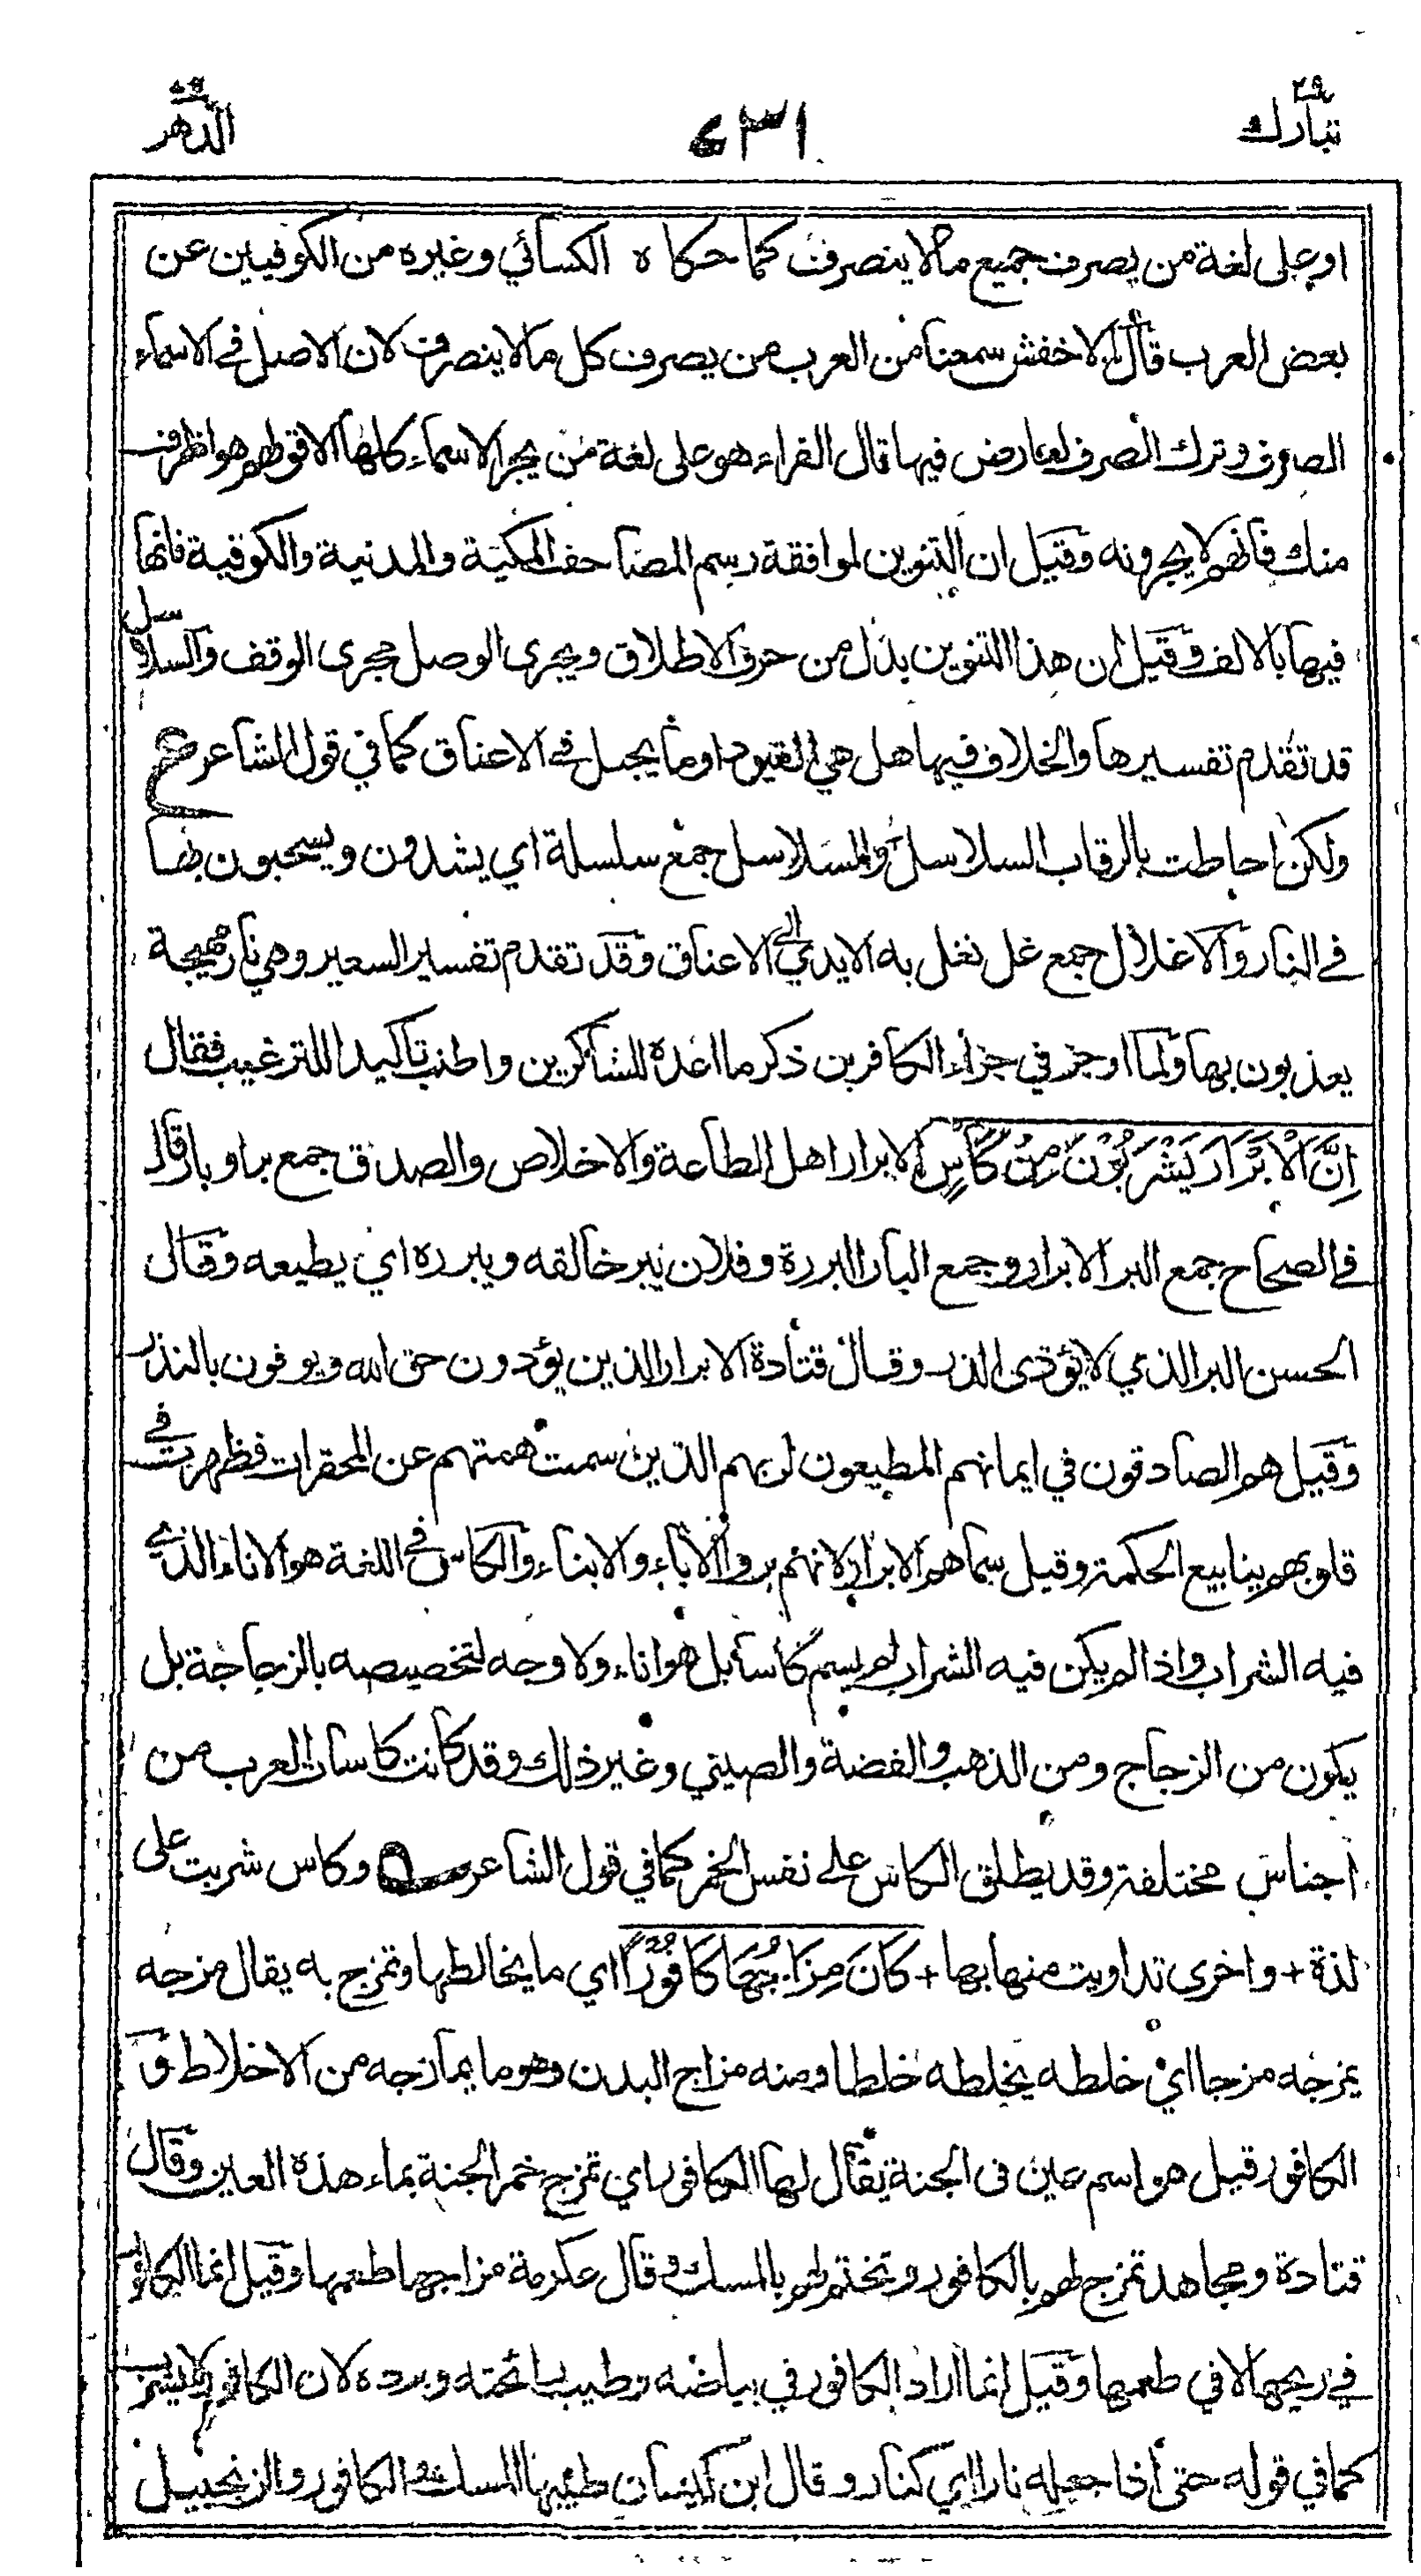 تبارك ٢٩
١٣٦
الدهر ٧٦
او على لغة من يصرف جميع مالا ينصرف كما حكاه الكسائي وغيره من الكوفيين عن
بعض العرب قال الاخفش سمعنا من العرب من يصرف كل مالا ينصرف لان الاصل في الاسماء
الصرف وترك الصرف لعارض فيها قال الفراء هو على لغة من يجر الاسماء كلها الا قولهم هو اظرف
منك فانهم لا يجرونه وقيل ان التنوين لموافقة رسم المصاحف المكية والمدنية والكوفية فانها
فيها بالالف وقيل ان هذا التنوين بدل من حرف الاطلاق ويجرى الوصل مجرى الوقف والسلاسل
قد تقدم تفسيرها والخلاف فيها هل هي القيود او ما يجعل في الاعناق كما في قول الشاعر ع
ولكن احاطت بالرقاب السلاسل والسلاسل جمع سلسلة اي يشدون ويسحبون بها
في النار والاغلال جمع غل تغل به الايدي الى الاعناق وقد تقدم تفسير السعير وهي نار مهيجة
يعذبون بها ولما اوجز في جزاء الكافرين ذكر ما اعده للشاكرين واطنب تاكيدا للترغيب فقال
اِنَّ الْاَبْرَارَ يَشْرَبُوْنَ مِنْ كَاْسٍ الابرار اهل الطاعة والاخلاص والصدق جمع بر او بار قال
في الصحاح جمع البر الابرار وجمع البار البررة وفلان يبر خالقه ويبرره اي يطيعه وقال
الحسن البر الذي لا يؤذى الذر وقال قتادة الابرار الذين يؤدون حق الله ويوفون بالنذر
وقيل هم الصادقون في ايمانهم المطيعون لربهم الذين سمت همتهم عن المحقرات فظهرت في
قلوبهم ينابيع الحكمة وقيل سماهم الابرار لانهم بروا الآباء والابناء والكاس في اللغة هو الاناء الذي
فيه الشراب واذا لم يكن فيه الشراب لم يسم كأسا بل هو اناء ولا وجه لتخصيصه بالزجاجة بل
يكون من الزجاج ومن الذهب والفضة والصيني وغير ذلك وقد كانت كاسات العرب من
اجناس مختلفة وقد يطلق الكاس على نفس الخمر كما في قول الشاعر وكاس شربت على
لذة + واخرى تداويت منها بها + كَانَ مِزَاجُهَا كَافُوْرًا اي ما يخالطها وتمزج به يقال مزجه
يمزجه مزجا اي خلطه يخلطه خلطا ومنه مزاج البدن وهو ما يمازجه من الاخلاط و
الكافور قيل هو اسم عين في الجنة يقال لها الكافور اي تمزج خمر الجنة بماء هذه العين وقال
قتادة ومجاهد تمزج لهم بالكافور وتختم لهم بالمسك وقال عكرمة مزاجها طعمها وقيل انما الكافور
في ريحها لا في طعمها وقيل انما اراد الكافور في بياضه وطيب رائحته وبرده لان الكافور لا يشرب
كما في قوله حتى اذا جعله نارا اي كنار وقال ابن كيسان طيبها المسك والكافور والزنجبيل